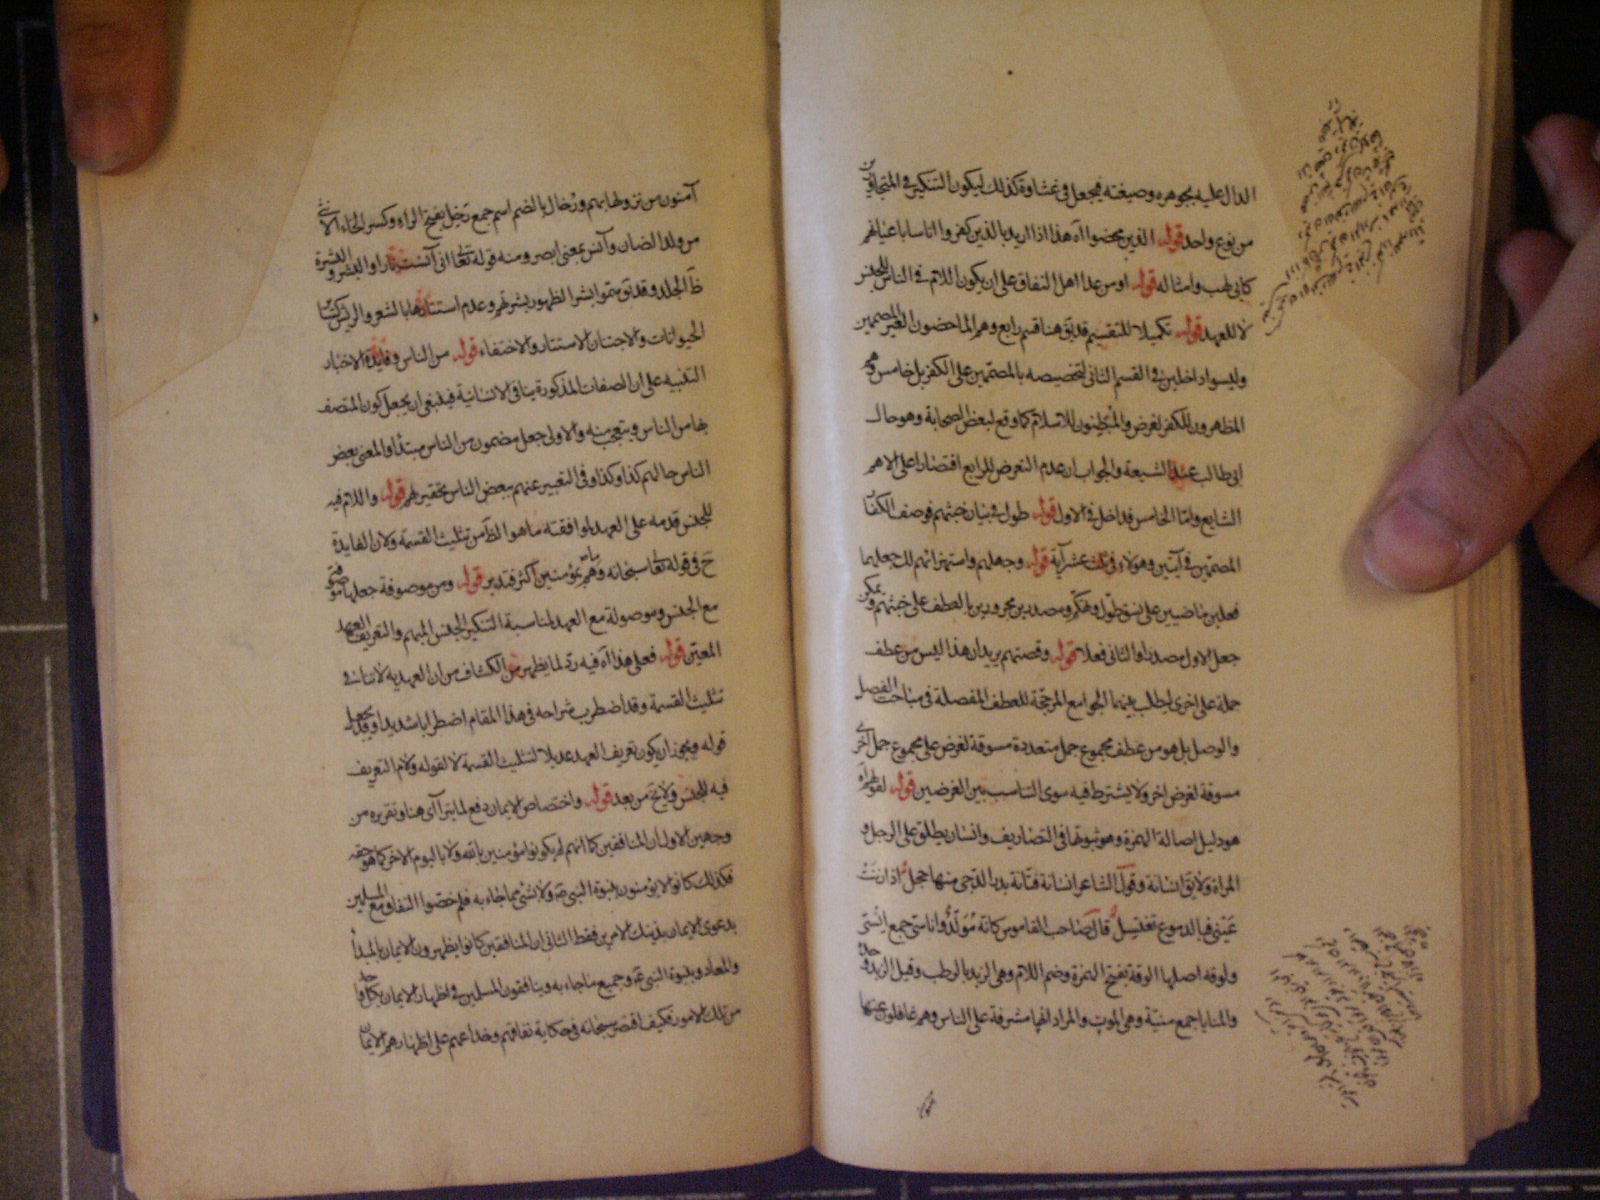 الدال عليه بجوهره وصيغته فيجعل في غشاوة كذلك ليكون التنكير في المتجاورين
من نوع واحد قوله الذين محضوا اه هذا اذا اريد بالذين كفروا اناسا باعيانهم
كابي لهب وامثاله قوله او من عدا اهل النفاق على ان يكون اللام في الناس للجنس
لا للعهد قوله تكميلا للتقسيم قد بقي هنا قسم رابع وهم الماحضون الغير المصممين
وليسوا داخلين في القسم الثاني لتخصيصه بالمصممين على الكفر بل خامس وهم
المظهرون للكفر لغرض والمبطنون للاسلام كما وقع لبعض الصحابة وهو حال
ابي طالب عند الشيعة والجواب ان عدم التعرض للرابع اقتصارا على الاهم
الشايع واما الخامس فداخل في الاول قوله طول في بيان خبثهم فوصف الكفار
المصممين في آيتين وهولاء في ثلث عشر آية قوله وجهلهم واستهزائهم لك جعلهما
فعلين ماضيين على نسق طول وتهكم ومصدرين مجرورين بالعطف على خبثهم ويمكن
جعل الاول مصدرا والثاني فعلا قوله وقصتهم يريد ان هذا ليس من عطف
جملة على اخرى ليطلب بينهما الجوامع المرجحة للعطف المفصلة في مباحث الفصل
والوصل بل هو من عطف مجموع جمل متعددة مسوقة لغرض على مجموع جمل اخرى
مسوقة لغرض اخر ولا يشترط فيه سوى التناسب بين الغرضين قوله لقولهم اه
هو دليل اصالة الهمزة وهو ثبوتها في التصاريف وانسان يطلق على الرجل و
المراة ولا يق انسانة وقول الشاعر انسانة فتانة بدر الدجى منها خجل اذا زنت
عيني فبالدموع تغتسل قال صاحب القاموس كانه مولد واناسي جمع انسي
ولوقه اصلها الوقة بفتح الهمزة وضم اللام وهي الزبد بالرطب وقيل الزبد وحده
والمنايا جمع منية وهي الموت والمراد انها مشرفة على الناس وهم غافلون عنها
آمنون من نزولها بهم ورخال بالضم اسم جمع رخل بفتح الراء وكسر الخاء الانثى
من ولد الضان وآنس بمعنى ابصر ومنه قوله تعالى اني آنست نارا والبشر والبشرة
ظ الجلد وقد سموا بشرا لظهور بشرتهم وعدم استتارها بالشعر والريش كسائر
الحيوانات والاجتنان الاستتار والاختفاء قوله من الناس وفايدة الاخبار
التنبيه على ان الصفات المذكورة ينافي الانسانية فينبغي ان يجعل كون المتصف
بها من الناس ويتعجب منه والاولى جعل مضمون من الناس مبتدأ والمعنى بعض
الناس حالهم كذا وكذا وفي التعبير عنهم ببعض الناس تحقير لهم قوله واللام فيه
للجنس قدمه على العهد لموافقته ما هو الظ من تثليث القسمة ولان الفايدة
ح في قوله تعالى سبحانه وما هم بمؤمنين اكثر فتدبر قوله ومن موصوفة جعلها موصوفة
مع الجنس وموصولة مع العهد لمناسبة التنكير الجنس المبهم والتعريف العهد
المعين قوله فعلى هذا اه فيه رد لما يظهر من الكشاف من ان العهدية لا تنافي
تثليث القسمة وقد اضطرب شراحه في هذا المقام اضطرابا شديدا وقد يجعل
قوله ويجوز ان يكون تعريف العهد عديلا لتثليث القسمة لا لقوله ولام التعريف
فيه للجنس ولا يخ من بعد قوله واختصاص الايمان دفع لما يترآى هنا وتقريره من
وجهين الاول ان المنافقين كما انهم لم يكونوا مؤمنين بالله ولا باليوم الاخر كما هو حقه
فكذلك كانوا لا يؤمنون بنبوة النبي ص ولا بشئ مما جاء به فلم خصوا النفاق مع المسلمين
بدعوى الايمان بذينك الامرين فقط الثاني ان المنافقين كانوا يظهرون الايمان بالمبدأ
والمعاد وبنبوة النبي ع وجميع ما جاء به وينافقون المسلمين في اظهار الايمان بكل واحد
من تلك الامور فكيف اقتصر سبحانه في حكاية نفاقهم وخداعهم على اظهارهم الايمان